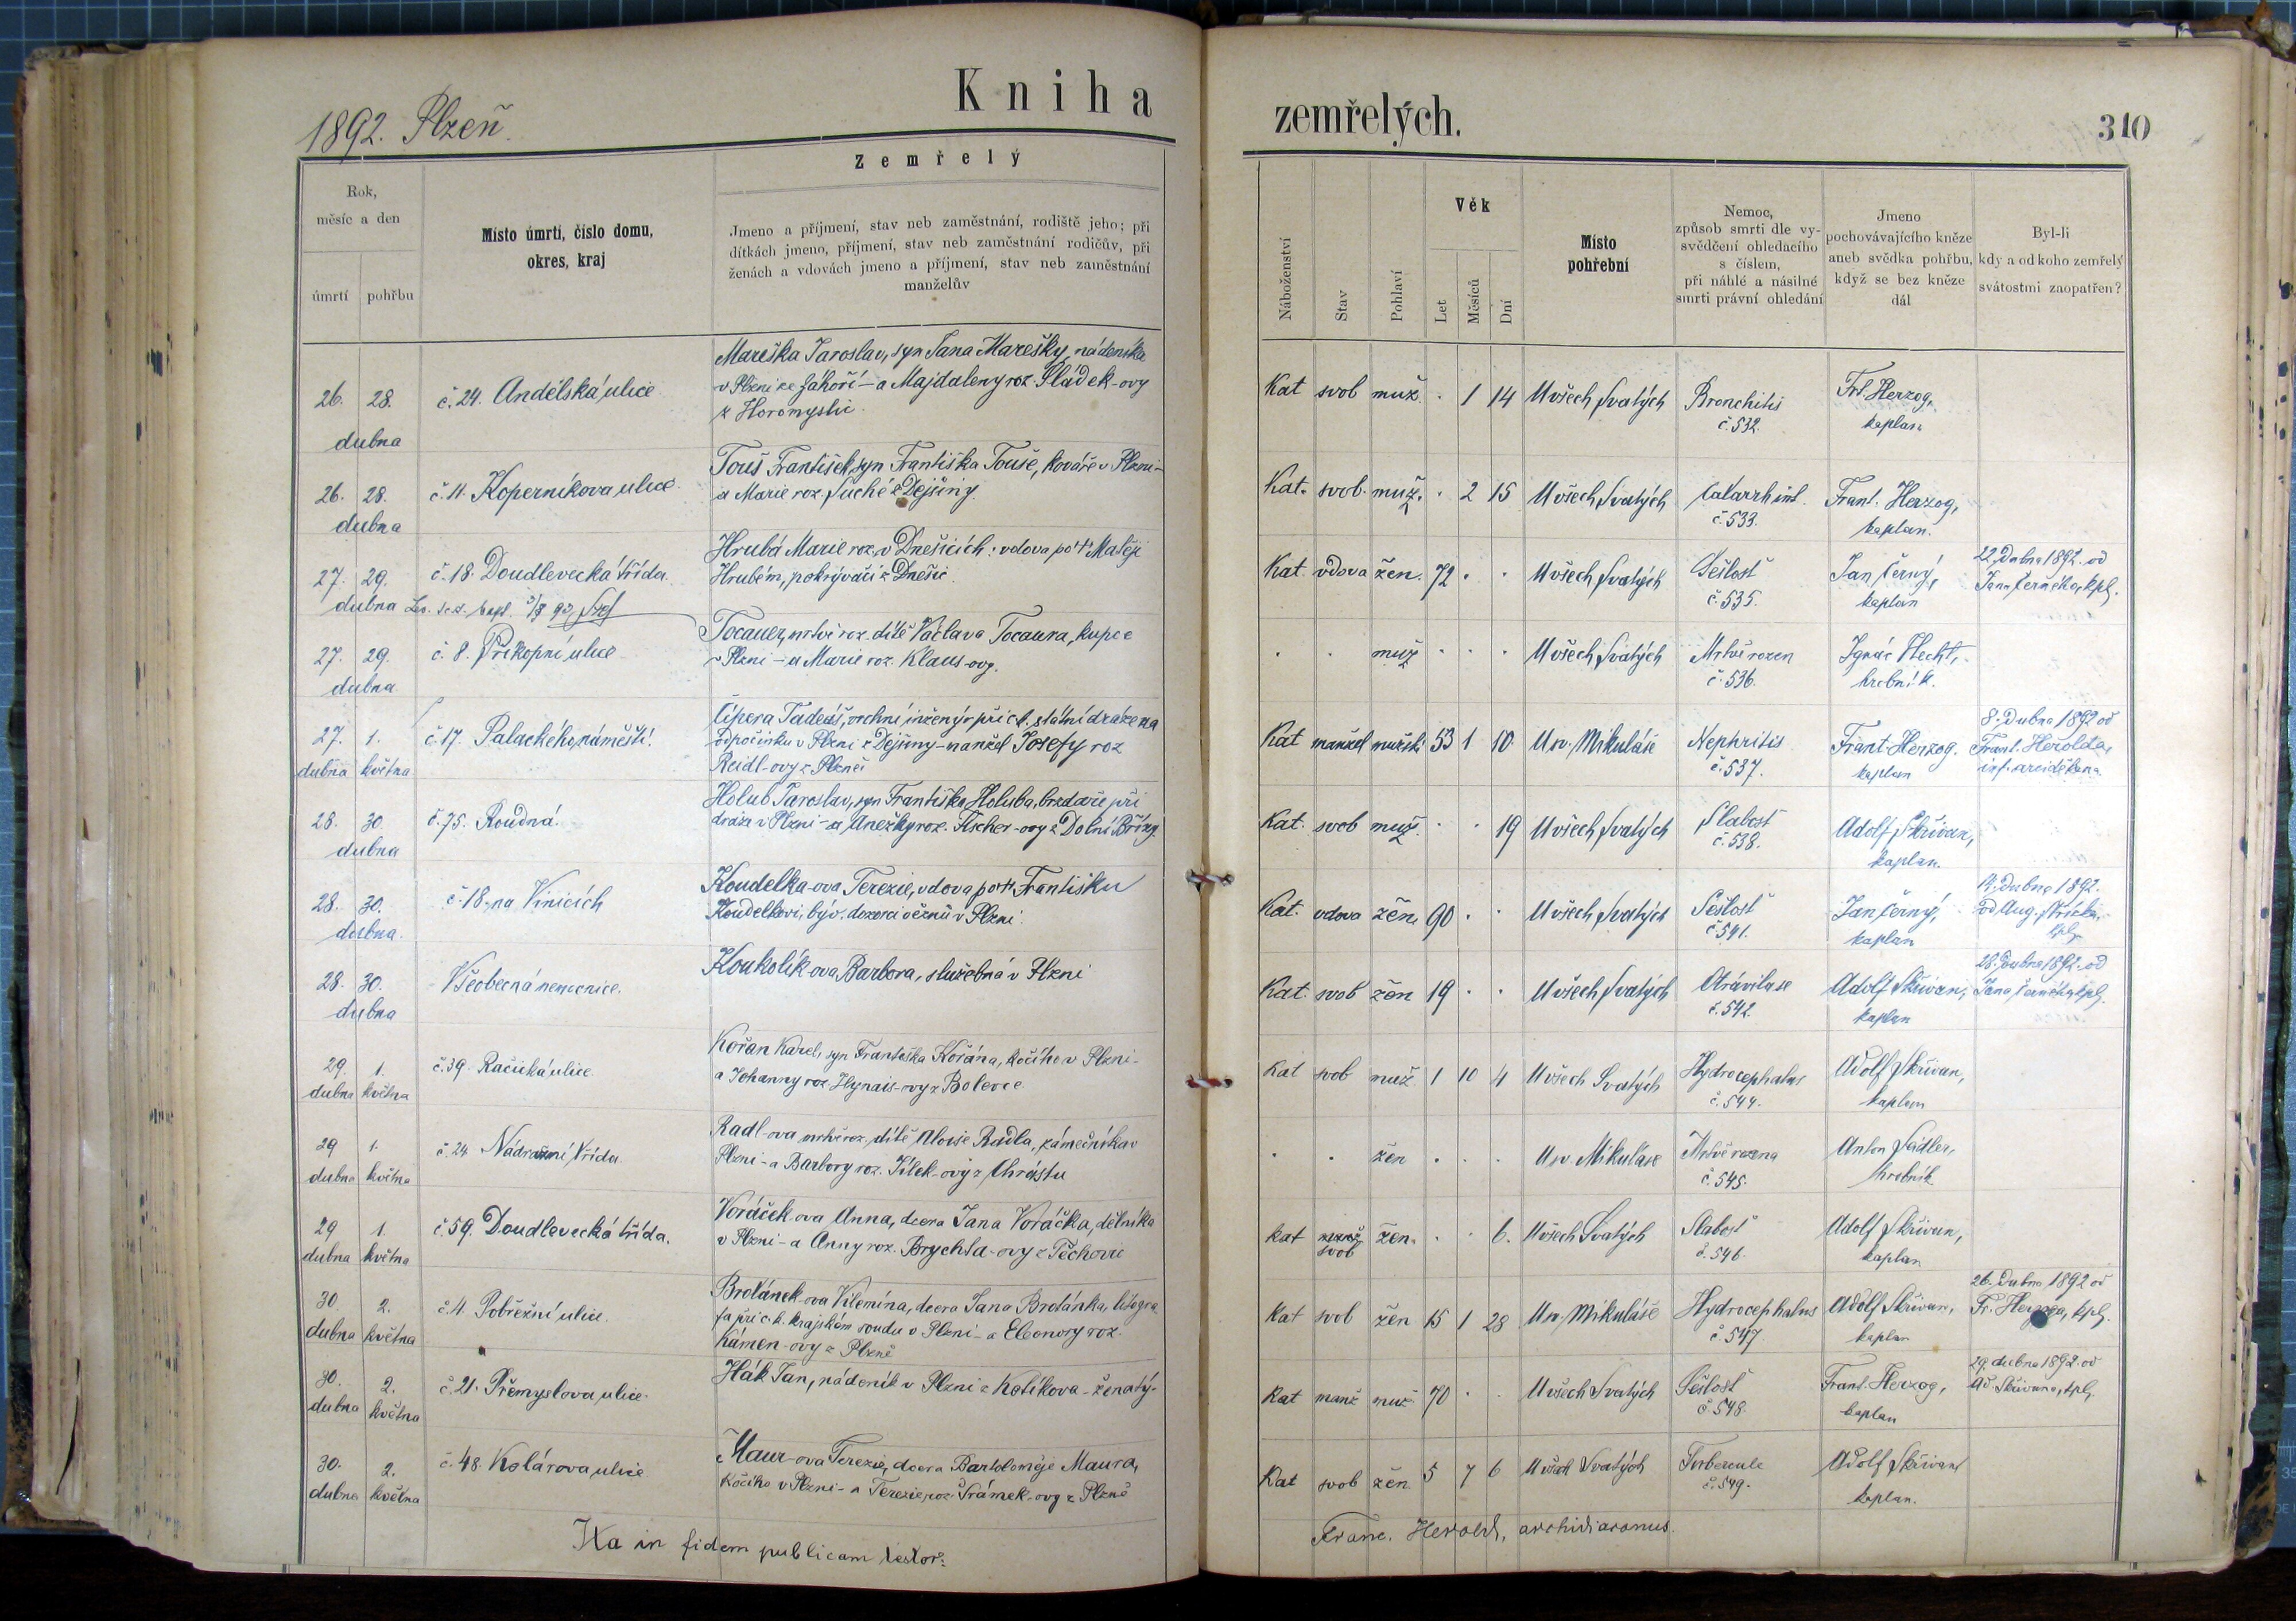 Kniha
zemřelých.
1892. Plzeň.
310
Rok,
měsíc a den
úmrtí
pohřbu
Místo úmrtí, číslo domu,
okres, kraj
Zemřelý
Jmeno a příjmení, stav neb zaměstnání, rodiště jeho; při
dítkách jmeno, příjmení, stav neb zaměstnání rodičův, při
ženách a vdovách jmeno a příjmení, stav neb zaměstnání
manželův
Náboženství
Stav
Pohlaví
Věk
Let
Měsíců
Dní
Místo
pohřební
Nemoc,
způsob smrti dle vy-
svědčení ohledacího
s číslem,
při náhlé a násilné
smrti právní ohledání
Jmeno
pochovávajícího kněze
aneb svědka pohřbu,
když se bez kněze
dál
Byl-li
kdy a od koho zemřelý
svátostmi zaopatřen?
26. 28. č. 24. Andělská ulice
dubna
Mareška Jaroslav, syn Jana Marešky, nádeníka
v Plzni ze Záhoří – a Majdaleny roz. Sládek-ovy
z Horomyslic
Kat svob muž. . 1 14 U všech Svatých Bronchitis Frt. Herzog,
č. 532. kaplan
26. 28. č. 11. Koperníkova ulice
dubna
Touš František, syn Františka Touše, kováře v Plzni –
a Marie roz. Suché z Dejšiny
Kat. svob. muž. . 2 15 U všech Svatých Catarrh int. Frant. Herzog,
č. 533. kaplan.
27. 29. č. 18. Doudlevecká třída
dubna
Hrubá Marie roz. v Dnešicích; vdova po † Matěji
Hrubém, pokrývači z Dnešic.
Kat. vdova žen. 72 . . U všech Svatých Sešlosť Jan Černý, 22. Dubna 1892. od
č. 535. kaplan Jana Černého, kpl.
27. 29. č. 8. Příkopní ulice
dubna
Tocauer, mrtvě roz. dítě Václava Tocaura, kupce
v Plzni – a Marie roz. Klaus-ovy.
. . muž . . . U všech Svatých Mrtvě rozen Ignác Hecht,
č. 536. hrobník.
27. 1. č. 17. Palackého náměstí.
dubna května
Čípera Tadeáš, vrchní inženýr při c.k. státní dráze na
odpočinku v Plzni z Dejšiny – manžel Josefy roz
Reidl-ovy z Plzně
Kat manžel mužsk. 53 1 10 U sv. Mikuláše Nephritis Frant. Herzog. 8. Dubna 1892 od
č. 537. kaplan Frant. Herolda,
inf. arciděkana
28. 30 č. 75. Roudná.
dubna
Holub Jaroslav, syn Františka Holuba, brzdaře při
dráze v Plzni – a Anežky roz. Fischer-ovy z Dolní Břízy.
Kat. svob muž. . . 19 U všech Svatých Slabosť Adolf Skřivan,
č. 538. kaplan.
28. 30. č. 18. na Vinicích
dubna.
Koudelka-ova Terezie, vdova po †† Františku
Koudelkovi, býv. dozorci věznů v Plzni
Kat. vdova žen. 90 . . U všech Svatých Sešlosť Jan Černý, 14. Dubna 1892.
č. 541. kaplan kpl.
28. 30. Všeobecná nemocnice.
dubna
Koukolík-ova Barbora, služebná v Plzni
Kat. svob žen 19 . . U všech Svatých Otrávila se Adolf Skřivan, 28. Dubna 1892. od
č. 542. kaplan Jana Černého, kpl.
29. 1. č. 39. Račická ulice.
dubna května
Kořan Karel, syn Františka Kořána, kočího v Plzni –
a Johanny roz. Hynais-ovy z Bolevce
Kat svob muž. 1 10 4 U všech Svatých Hydrocephalus Adolf Skřivan,
č. 544. kaplan
29 1. č. 24 Nádražní třída
dubna května
Radl-ova mrtvě roz. dítě Aloise Radla, zámečníka v
Plzni – a Barbory roz. Jílek-ovy z Chrástu
. . žen . . . U sv. Mikuláše Mrtvě rozena Anton Sádler,
č. 545. hrobník
29 1. č. 59. Doudlevecká třída.
dubna května
Voráček-ova Anna, dcera Jana Voráčka, dělníka
v Plzni – a Anny roz. Brychta-ovy z Těchovic
kat svob žen. . . 6. U všech Svatých Slabosť Adolf Skřivan,
č. 546. kaplan
30. 2. č. 4. Pobřežní ulice.
dubna května
Brotánek-ova Vilemína, dcera Jana Brotánka, litogra
fa při c.k. krajském soudu v Plzni – a Eleonory roz.
Kámen-ovy z Plzně
Kat svob žen 15 1 28 U sv. Mikuláše Hydrocephalus Adolf Skřivan, 26. Dubna 1892 od
č. 547 kaplan Fr. Herzoga, kpl.
30. 2. č. 21. Přemyslova ulice.
dubna května
Hák Jan, nádeník v Plzni z Kotíkova – ženatý –
Kat manž muž 70 . . U všech Svatých Sešlosť Frant. Herzog, 29. dubna 1892. od
č. 548. kaplan Ad. Skřivana, kpl.
30. 2. č. 48. Kolárova ulice
dubna května
Maur-ova Terezie, dcera Bartoloměje Maura,
kočího v Plzni – a Terezie roz. Šrámek-ovy z Plzně
Kat svob žen 5 7 6 U všech Svatých Tubercule Adolf Skřivan
č. 549. kaplan.
Ita in fidem publicam testor:
Franc. Herold, archidiaconus.